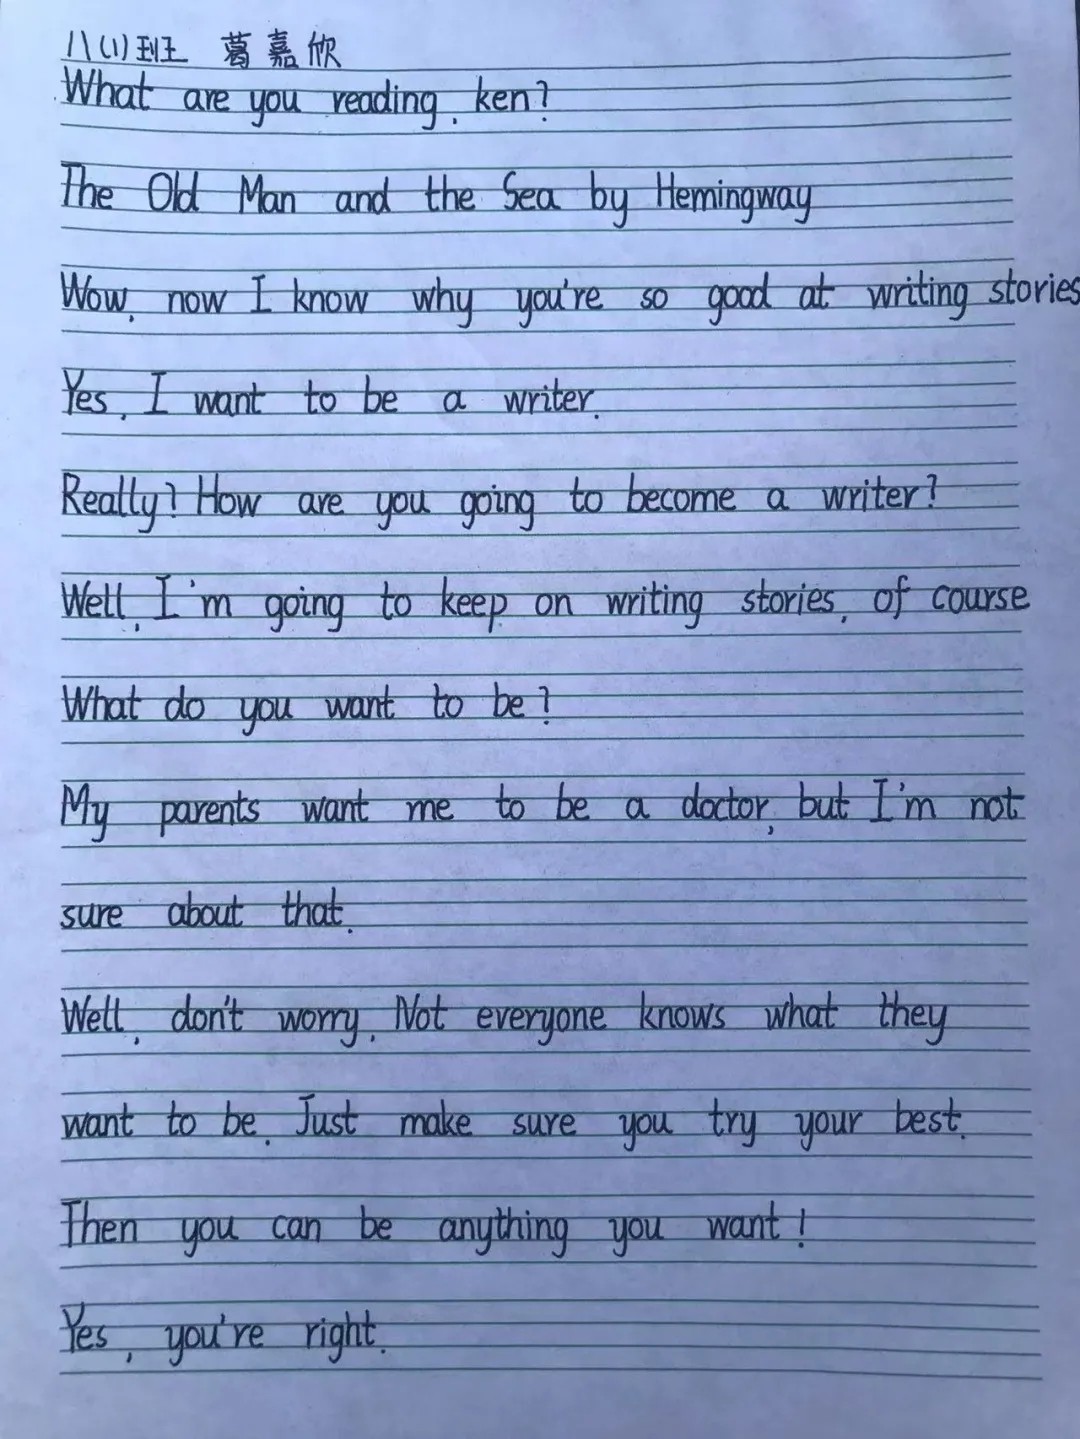 八(1)班 葛嘉欣
What are you reading, ken?
The Old Man and the Sea by Hemingway
Wow, now I know why you're so good at writing stories
Yes, I want to be a writer.
Really? How are you going to become a writer?
Well, I'm going to keep on writing stories, of course
What do you want to be?
My parents want me to be a doctor, but I'm not
sure about that.
Well, don't worry. Not everyone knows what they
want to be. Just make sure you try your best.
Then you can be anything you want!
Yes, you're right.